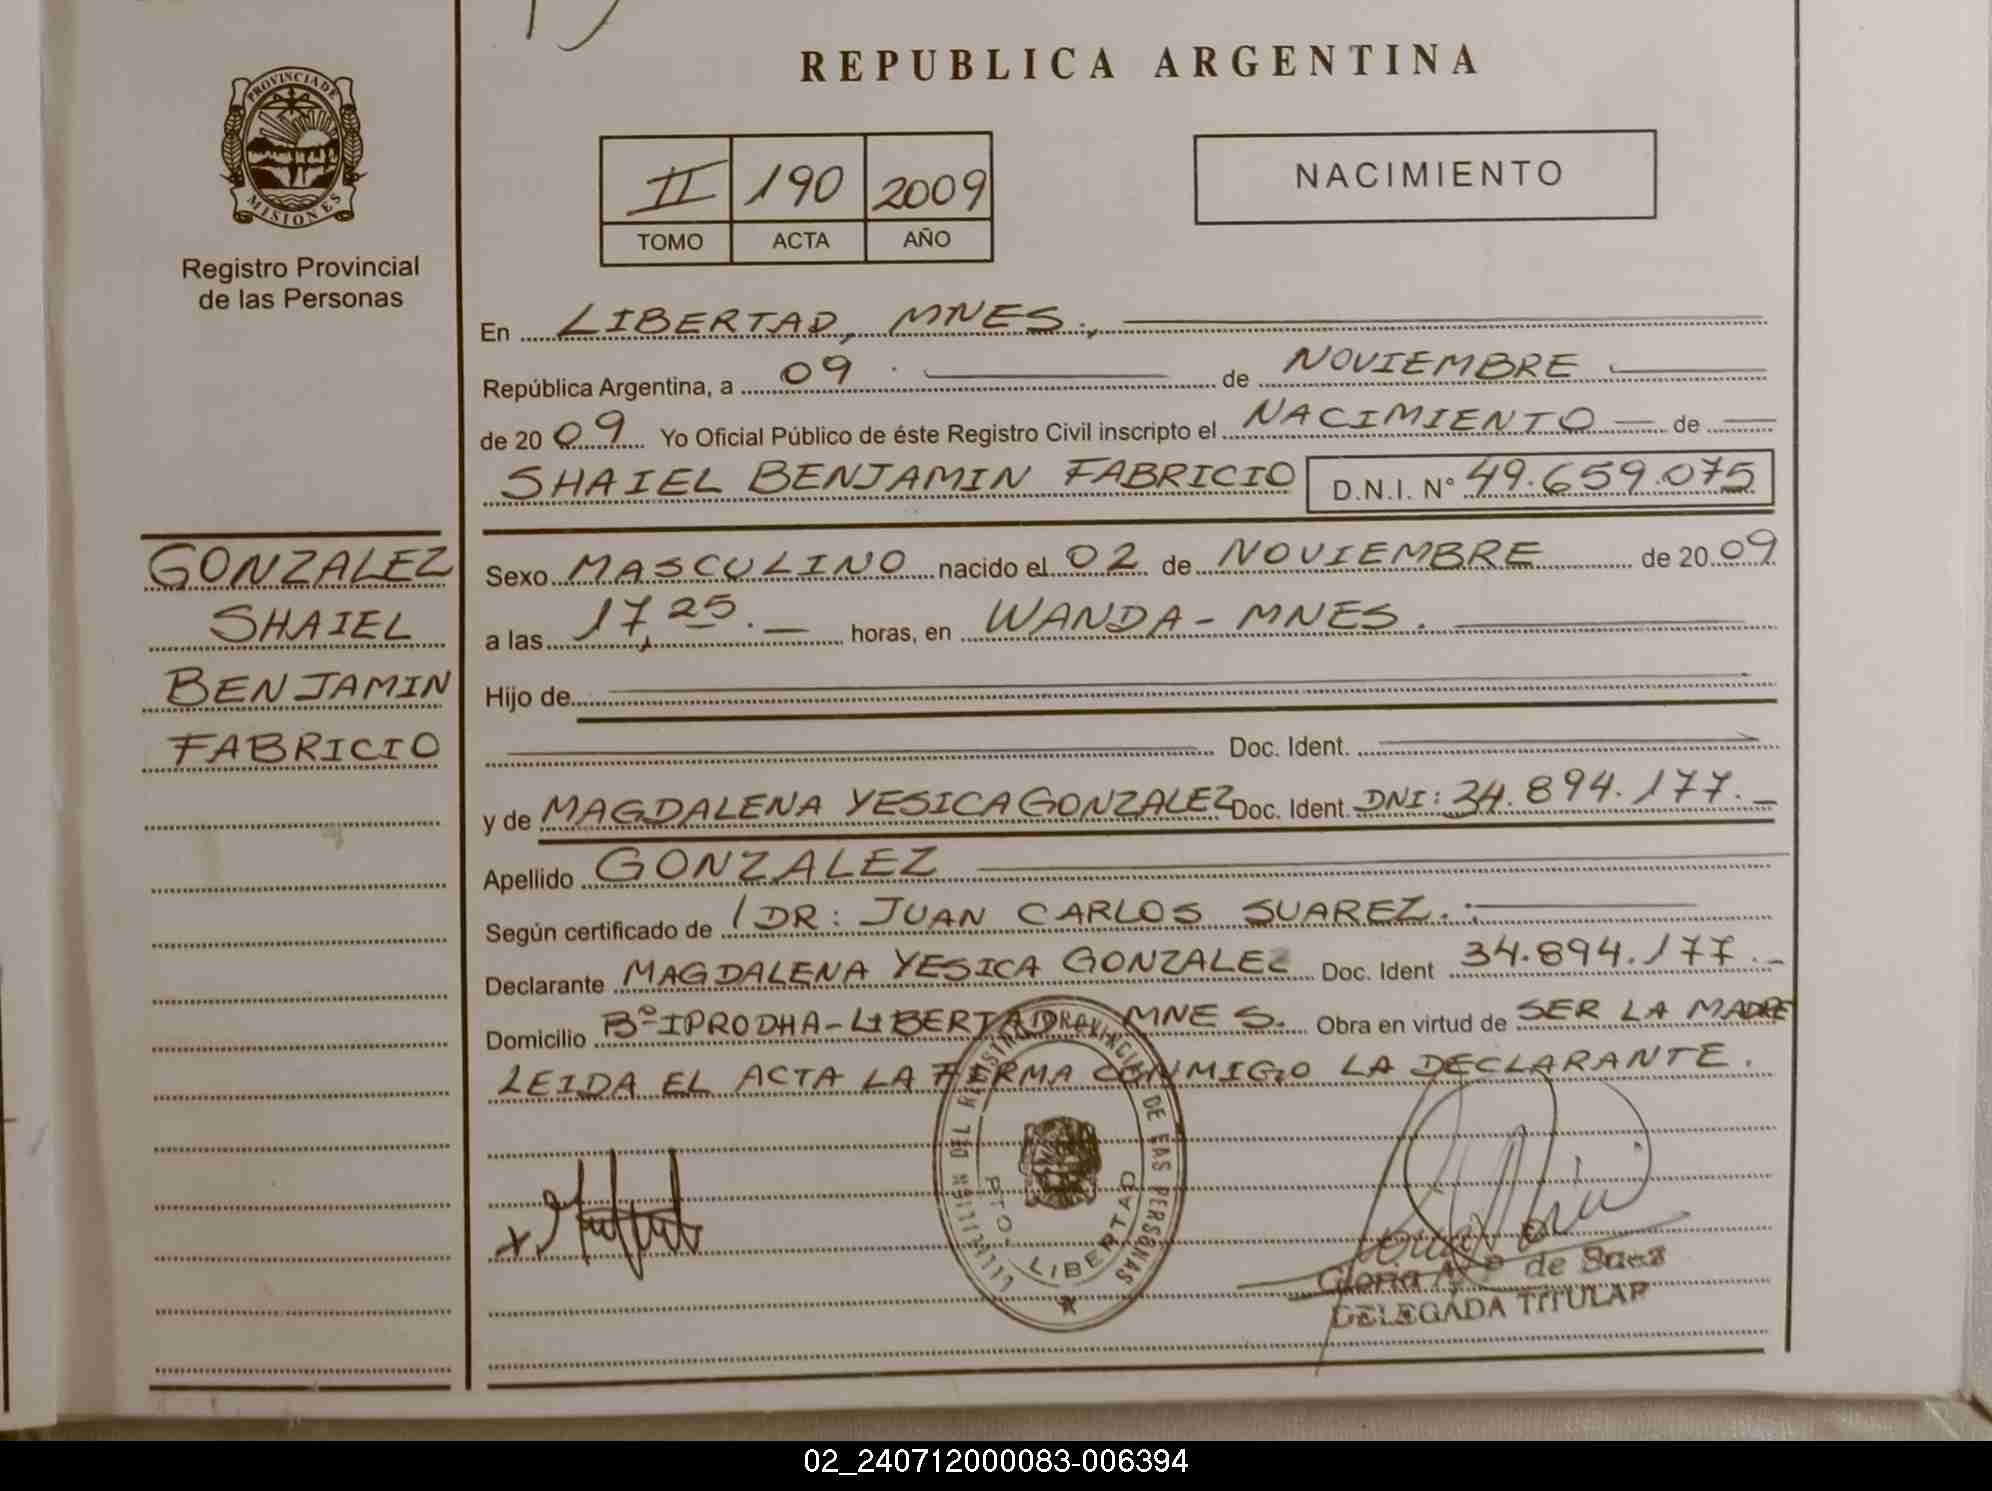 REPUBLICA ARGENTINA
PROVINCIA DE
MISIONES
Registro Provincial
de las Personas
II 190 2009
TOMO ACTA AÑO
NACIMIENTO
En LIBERTAD, MNES.,
República Argentina, a 09 de NOVIEMBRE
de 2009 Yo Oficial Público de éste Registro Civil inscripto el NACIMIENTO de
SHAIEL BENJAMIN FABRICIO D.N.I. N° 49.659.075
GONZALEZ
SHAIEL
BENJAMIN
FABRICIO
Sexo MASCULINO nacido el 02 de NOVIEMBRE de 2009
a las 17,25. horas, en WANDA - MNES.
Hijo de
Doc. Ident.
y de MAGDALENA YESICA GONZALEZ Doc. Ident. DNI: 34.894.177.
Apellido GONZALEZ
Según certificado de DR: JUAN CARLOS SUAREZ.
Declarante MAGDALENA YESICA GONZALEZ Doc. Ident 34.894.177.
Domicilio B° IPRODHA - LIBERTAD MNES. Obra en virtud de SER LA MADRE
LEIDA EL ACTA LA FIRMA CONMIGO LA DECLARANTE.
REGISTRO PROVINCIAL DE LAS PERSONAS
PTO. LIBERTAD
Gloria de Saez
DELEGADA TITULAR
02_240712000083-006394